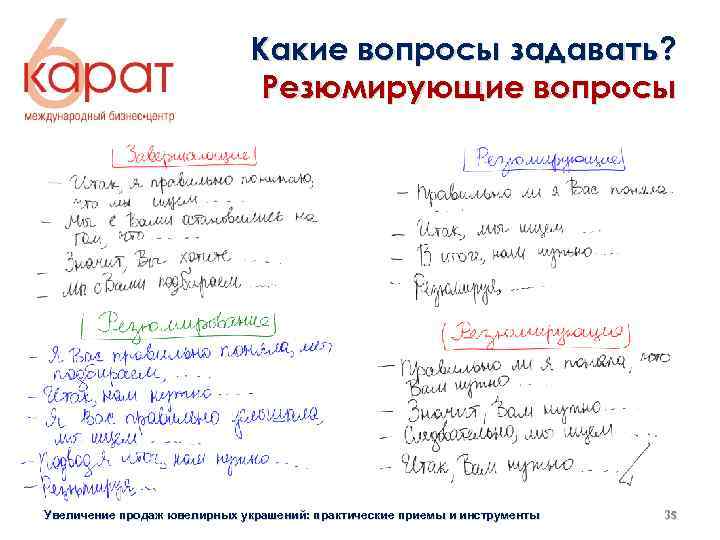 6 карат
международный бизнес•центр
Какие вопросы задавать?
Резюмирующие вопросы
Завершающие
– Итак, я правильно понимаю,
что мы ищем...
– Мы с Вами остановились на
том, что ....
– Значит, Вы хотите ...
– Мы с Вами подбираем ....
Резюмирующие
– Правильно ли я Вас поняла...
– Итак, мы ищем ...
– В итоге, нам нужно ...
– Резюмируя, ...
Резюмирование
– Я Вас правильно поняла, мы?
подбираем ....
– Итак, нам нужно ...
– Я Вас правильно услышала,
мы ищем ...
– Подводя итог, нам нужно ...
– Резюмируя ...
Резюмирующие
– Правильно ли я поняла, что
Вам нужно ....
– Значит, Вам нужно ...
– Следовательно, мы ищем ...
– Итак, Вам нужно ...
Увеличение продаж ювелирных украшений: практические приемы и инструменты
38